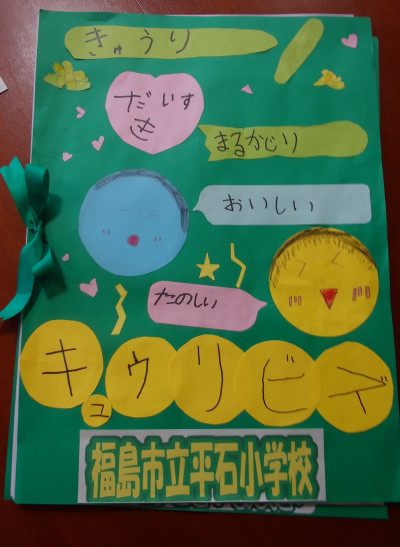 きゅうり
だいす
き
まるかじり
おいしい
たのしい
キュウリビズ
福島市立平石小学校